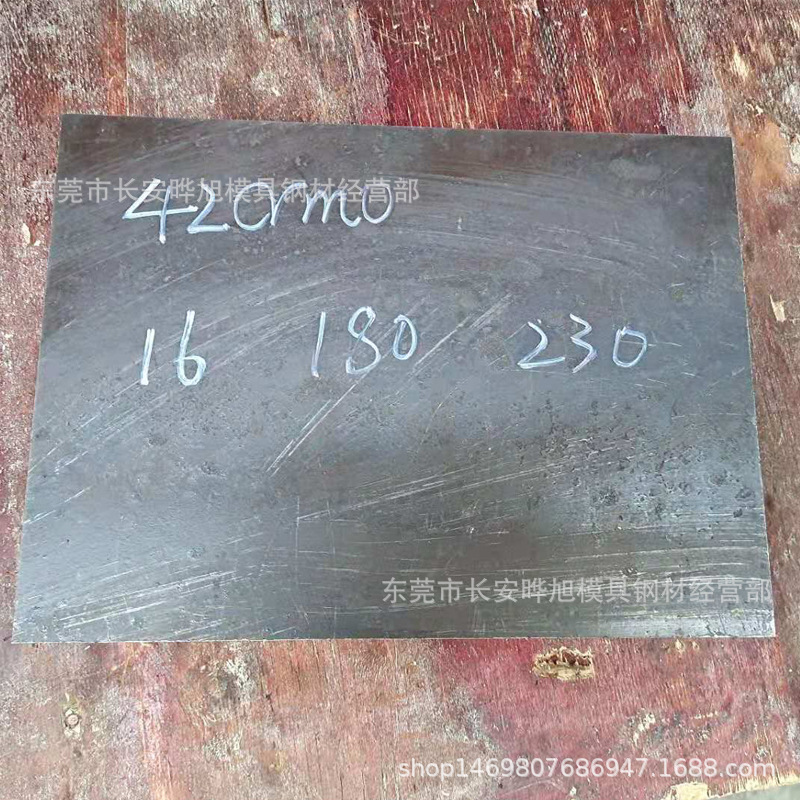 东莞市长安晔旭模具钢材经营部
42crmo
16 180 230
东莞市长安晔旭模具钢材经营部
shop1469807686947.1688.com